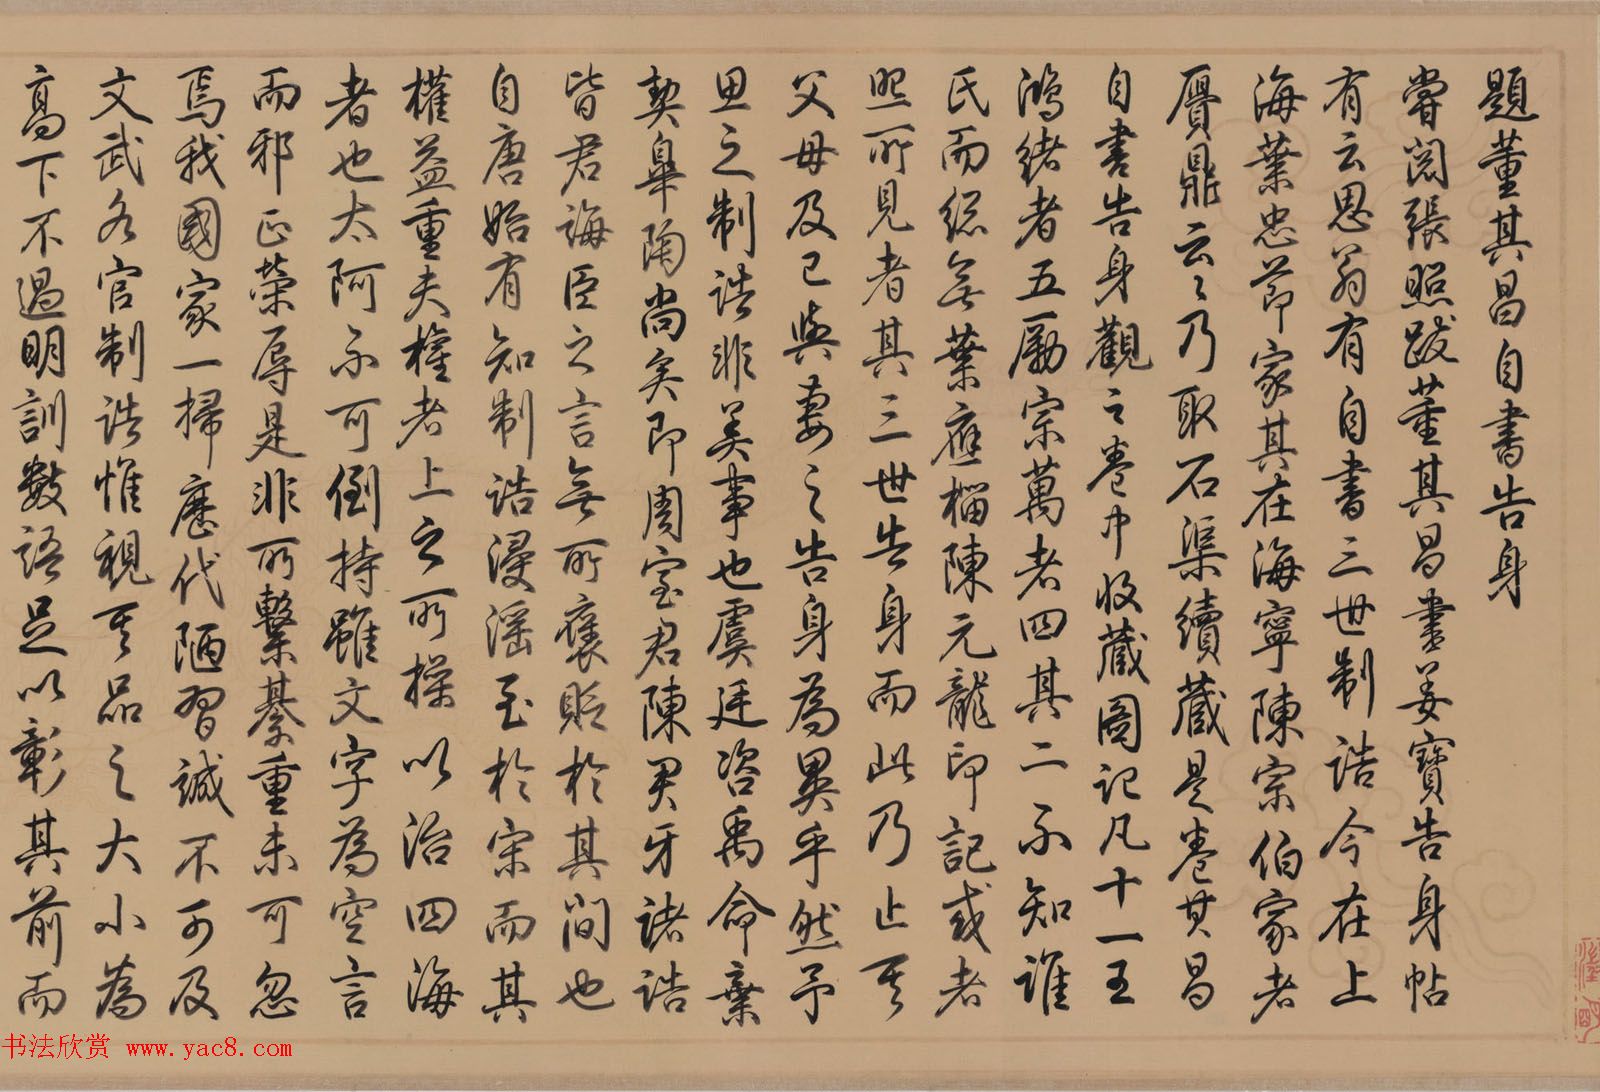 題董其昌自書告身
嘗閱張照跋董其昌書姜寶告身帖
有云思翁有自書三世制誥今在上
海葉忠節家其在海寧陳宗伯家者
贗鼎云云乃取石渠續藏是卷其昌
自書告身觀之卷中收藏圖記凡十一王
鴻緒者五勵宗萬者四其二不知誰
氏而總無葉應榴陳元龍印記或者
照所見者其三世告身而此乃止其
父母及己與妻之告身為異乎然予
思之制誥非美事也虞廷咨禹命棄
契皋陶尚矣即周室君陳君牙諸誥
皆君誨臣之言無所褒貶於其間也
自唐始有知制誥浸淫至於宋而其
權益重夫權者上之所操以治四海
者也太阿不可倒持雖文字為空言
而邪正榮辱是非所繫綦重未可忽
焉我國家一掃歷代陋習誠不可及
文武各官制誥惟視其品之大小為
高下不過明訓數語足以彰其前而
书法欣赏 www.yac8.com